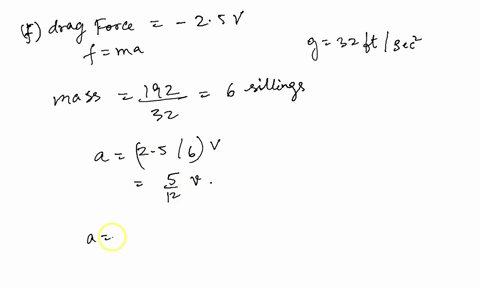 (f) drag Force = - 2.5 V
f = ma
g = 32 ft / sec²
mass = 192/32 = 6 sillings
a = (2-5 / 6) V
= 5/12 v.
a =